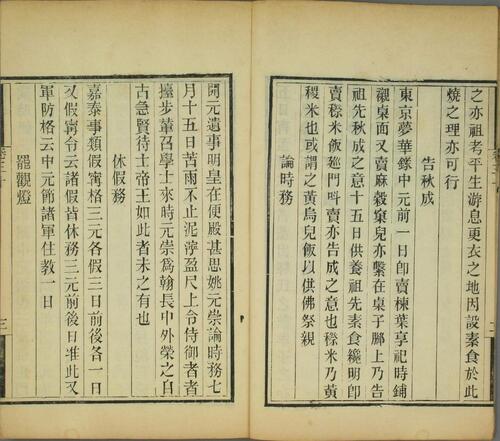 之亦祖考平生游息更衣之地因設素食於此
燒之理亦可行
告秋成
東京夢華錄中元前一日卽賣楝葉享祀時鋪
襯桌面又賣麻穀窠兒亦繫在桌子腳上乃告
祖先秋成之意十五日供養祖先素食纔明卽
賣穄米飯廵門呌賣亦告成之意也穄米乃黃
稷米也或謂之黃烏兒飯以供佛祭親
論時務
開元遺事明皇在便殿甚思姚元崇論時務七
月十五日苦雨不止泥濘盈尺上令侍御者者
擡步輦召學士來時元崇爲翰長中外榮之自
古急賢待士帝王如此者未之有也
休假務
嘉泰事類假寗格三元各假三日前後各一日
又假寗令云諸假皆休務三元前後日准此又
軍防格云中元節諸軍住教一日
罷觀燈
三